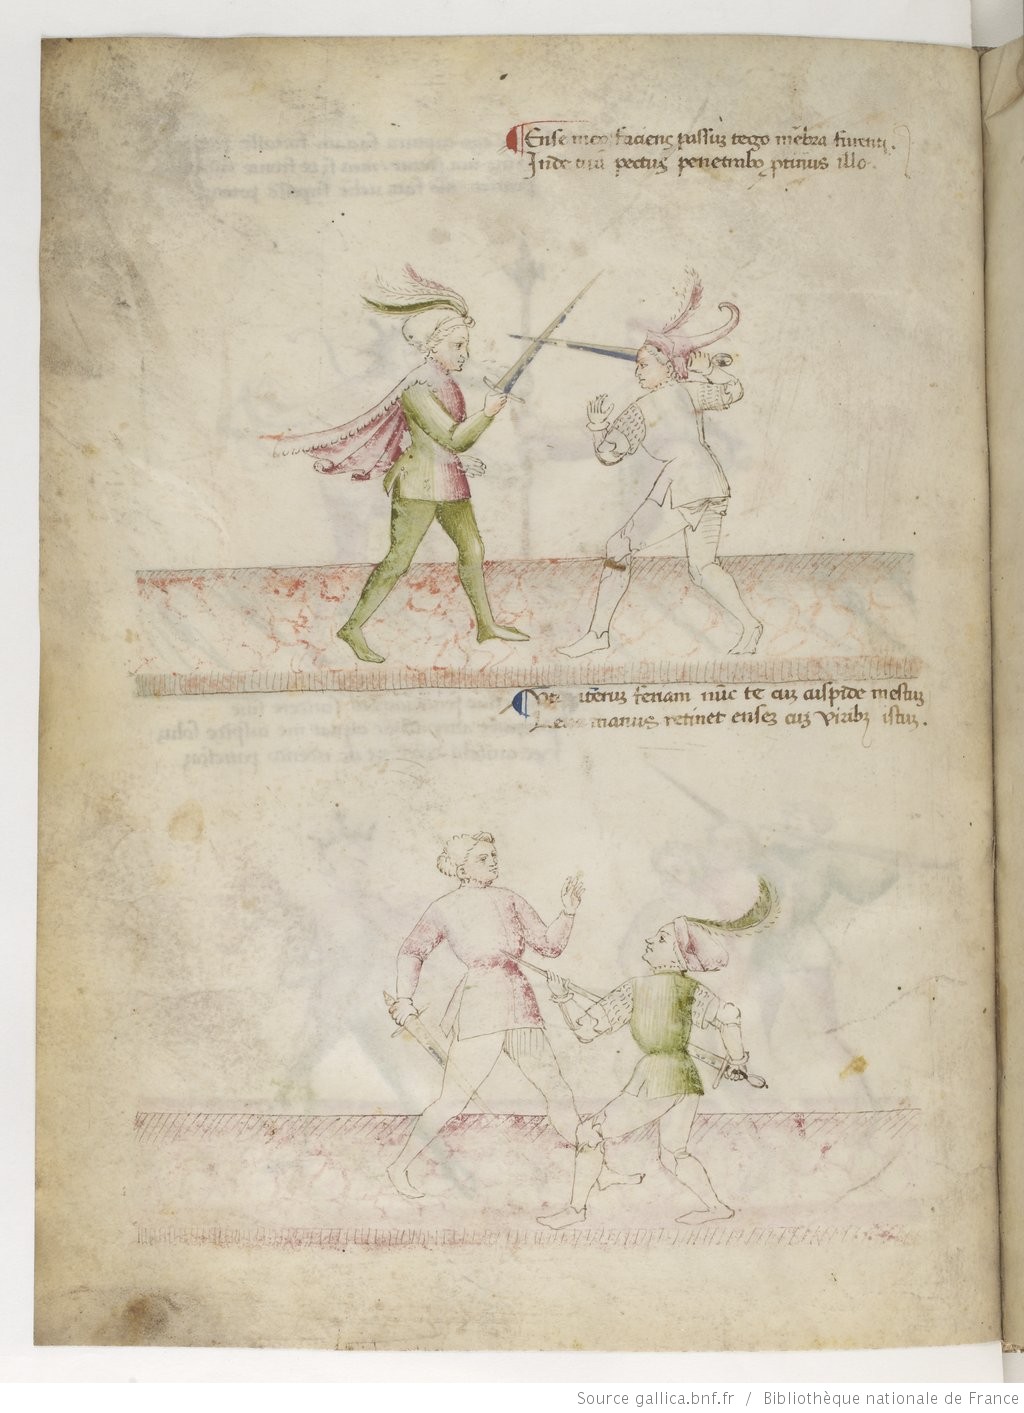 Ense meo faciens passuz tego mēbra fiventi.
Inde tuū pectus penetrabo ꝓtinus illo.
iteruz feriam nūc te cuz cuspide mestuz
manus retinet ensez cuz viribz istuz.
Source gallica.bnf.fr / Bibliothèque nationale de France